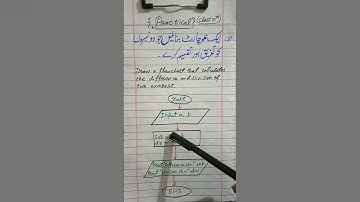 {Practical} (class 10th)
ایک فلو چارٹ بنائیں جو دو نمبروں
کو تفریق اور تقسیم کرے۔
Draw a flowchart that calculates
the difference and division of
two numbers
Start
Input a, b
Sub =
div =
Print
Print
END